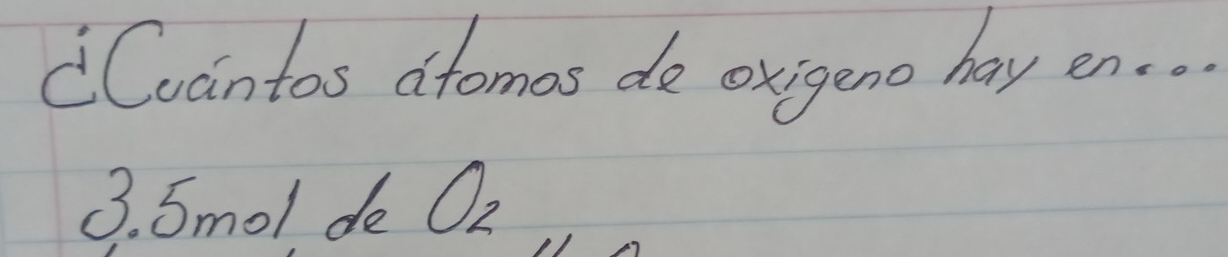 ¿Cuántos átomos de oxigeno hay en...
3.5mol de O₂